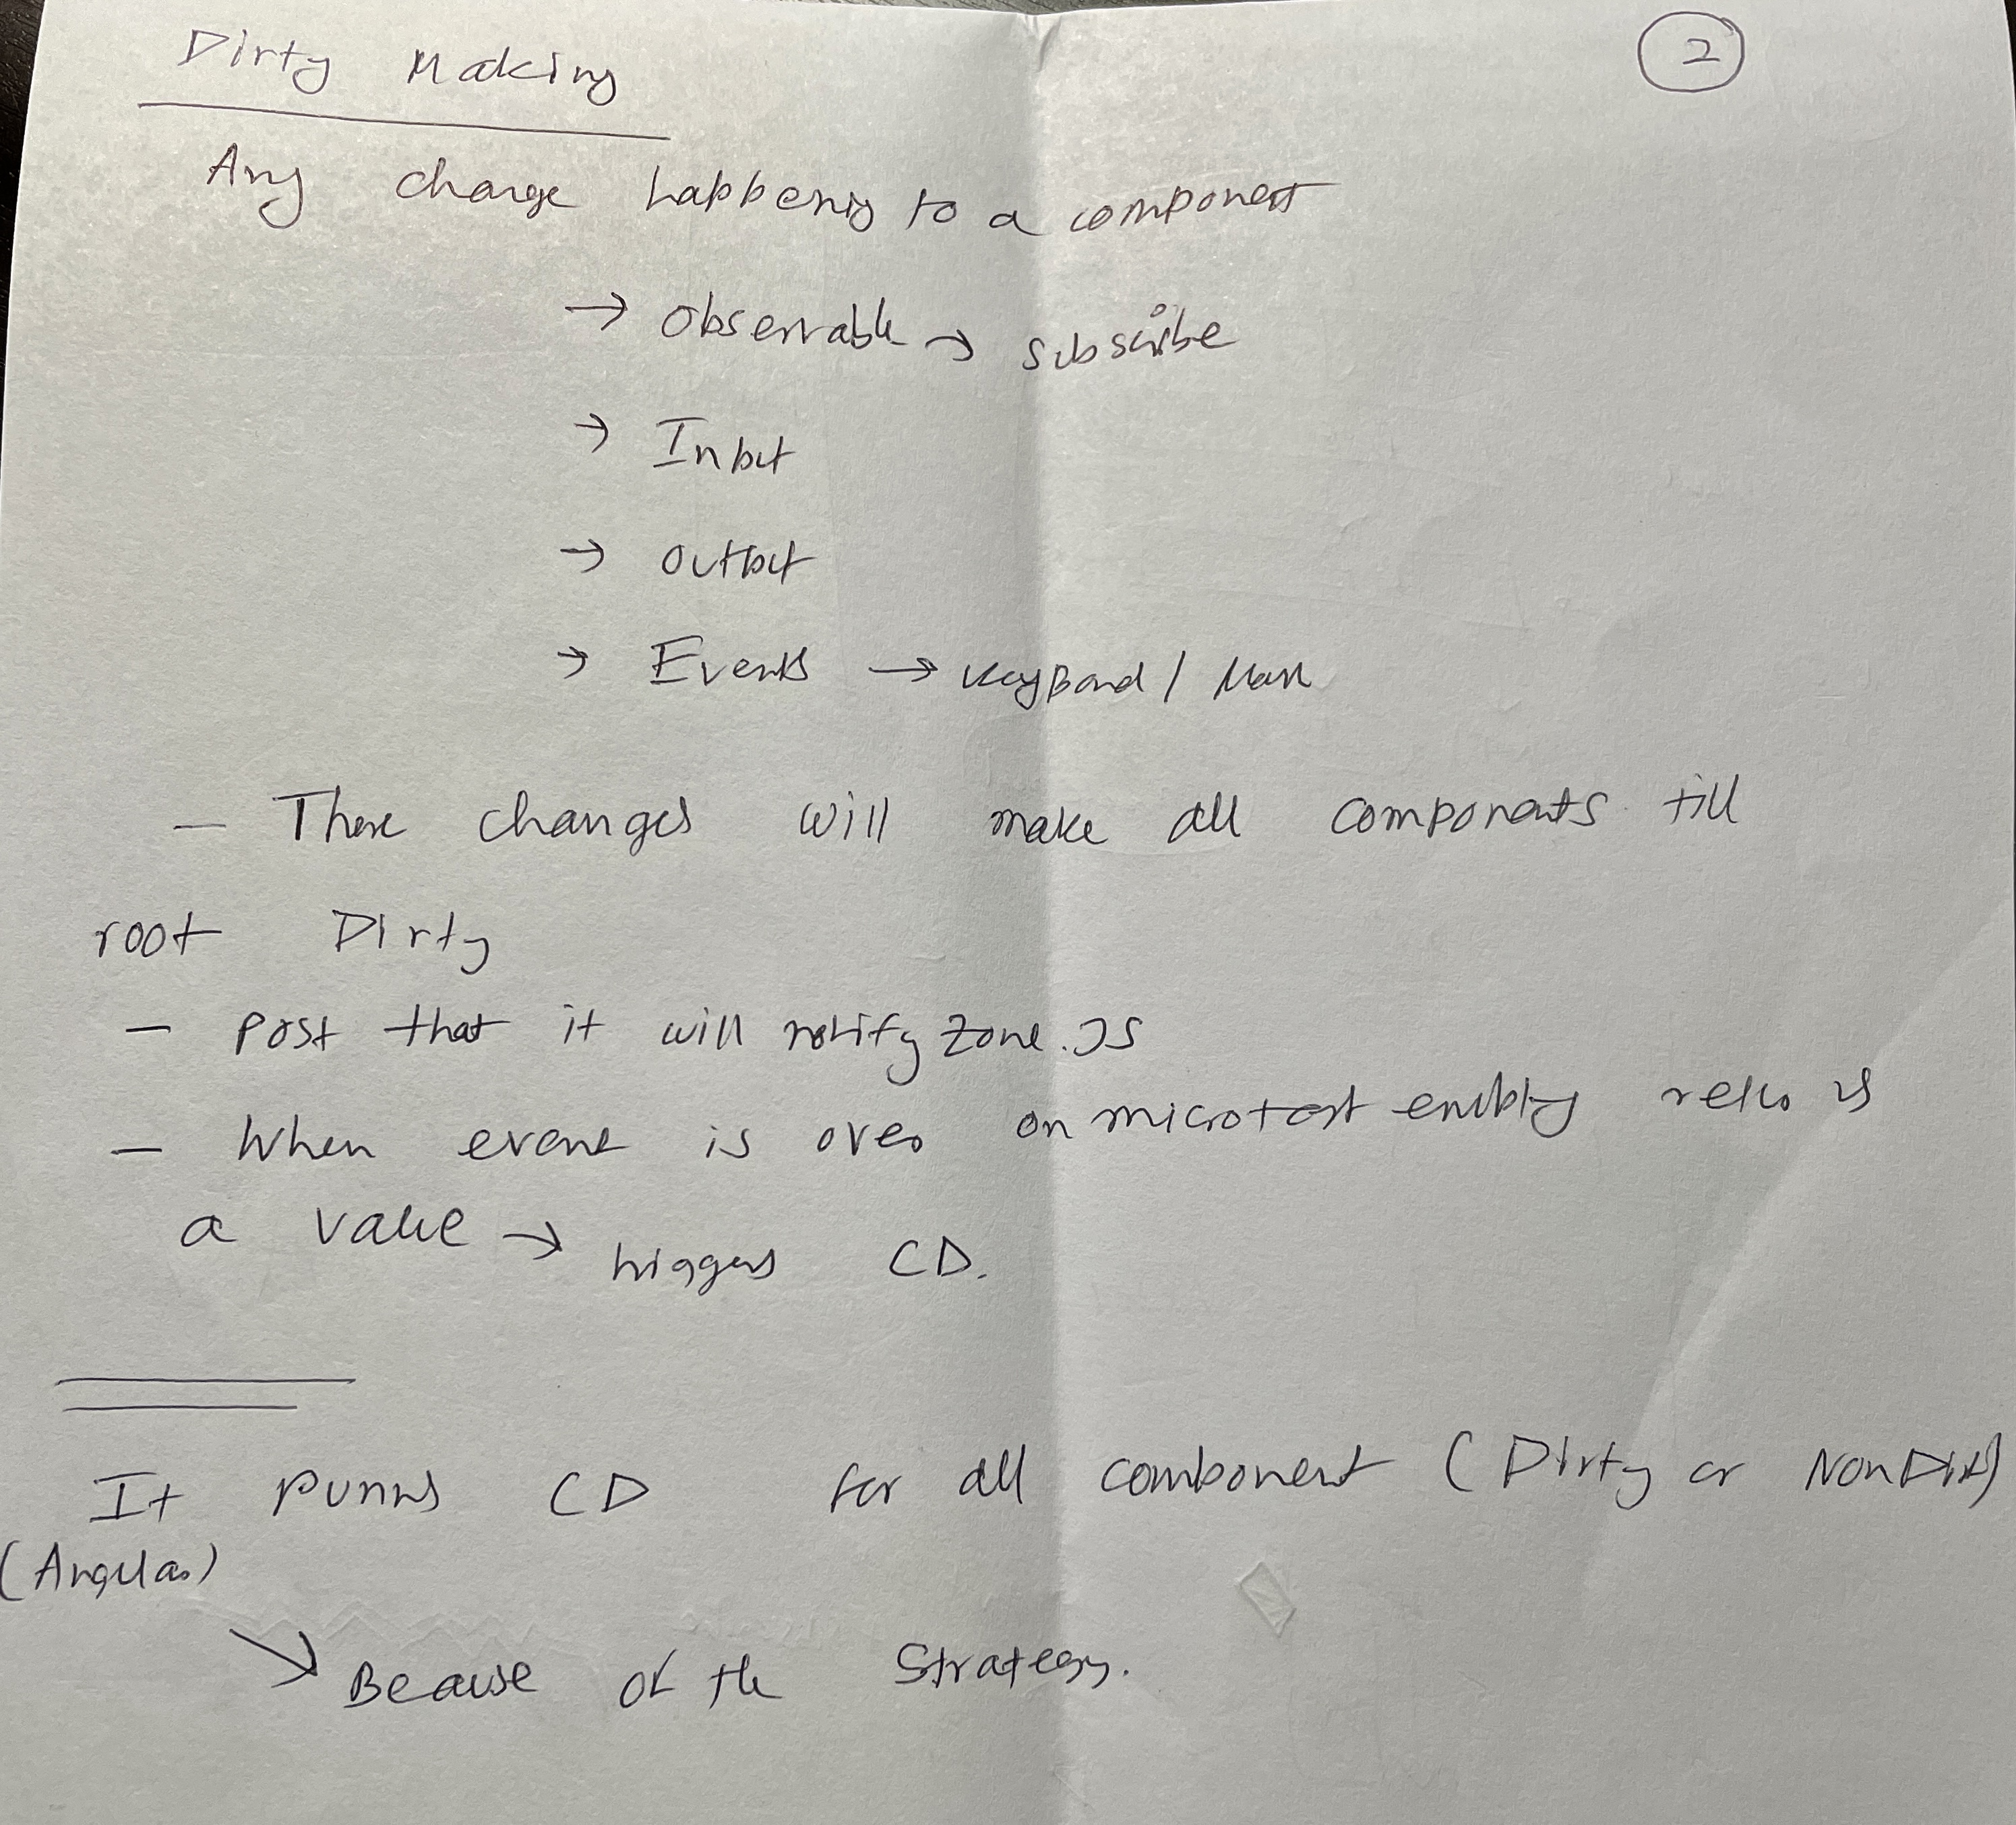 Dirty Making
2
Any change happening to a component
→ Observable → subscribe
→ Input
→ output
→ Events → KeyBoard / Mouse
— These changes will make all components till
root Dirty
— Post that it will notify Zone.JS
— When event is over on microtask empty returns
a value → triggers CD.
It runs CD for all component (Dirty or Non Dirty)
(Angular)
→ Because of the Strategy.